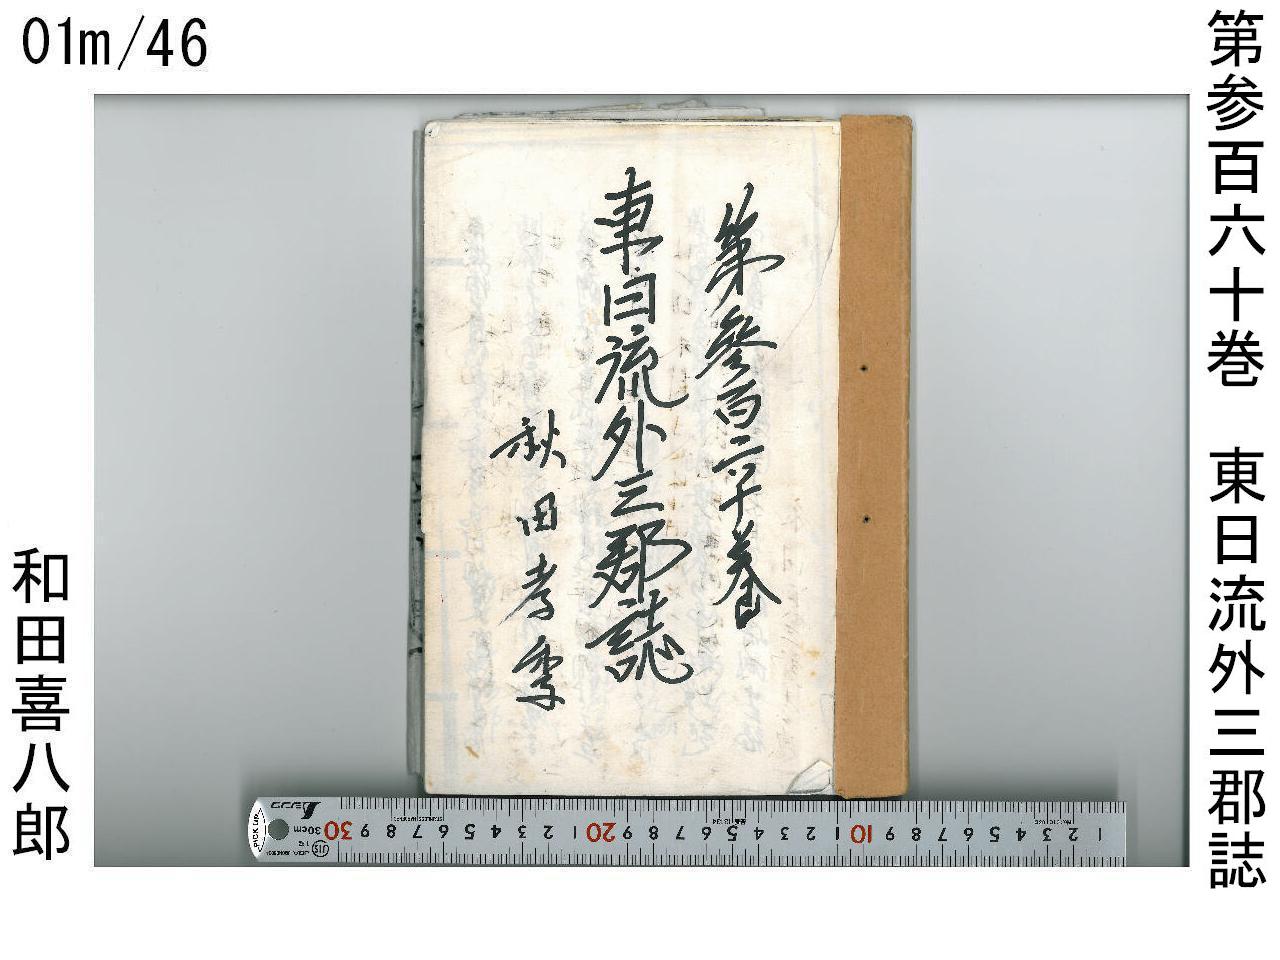 01m/46
第参百六十巻 東日流外三郡誌
第參百六十巻
東日流外三郡誌
秋田孝季
和田喜八郎
PICK UP
30cm
JIS
30 9 8 7 6 5 4 3 2 1 20 9 8 7 6 5 4 3 2 1 10 9 8 7 6 5 4 3 2 1